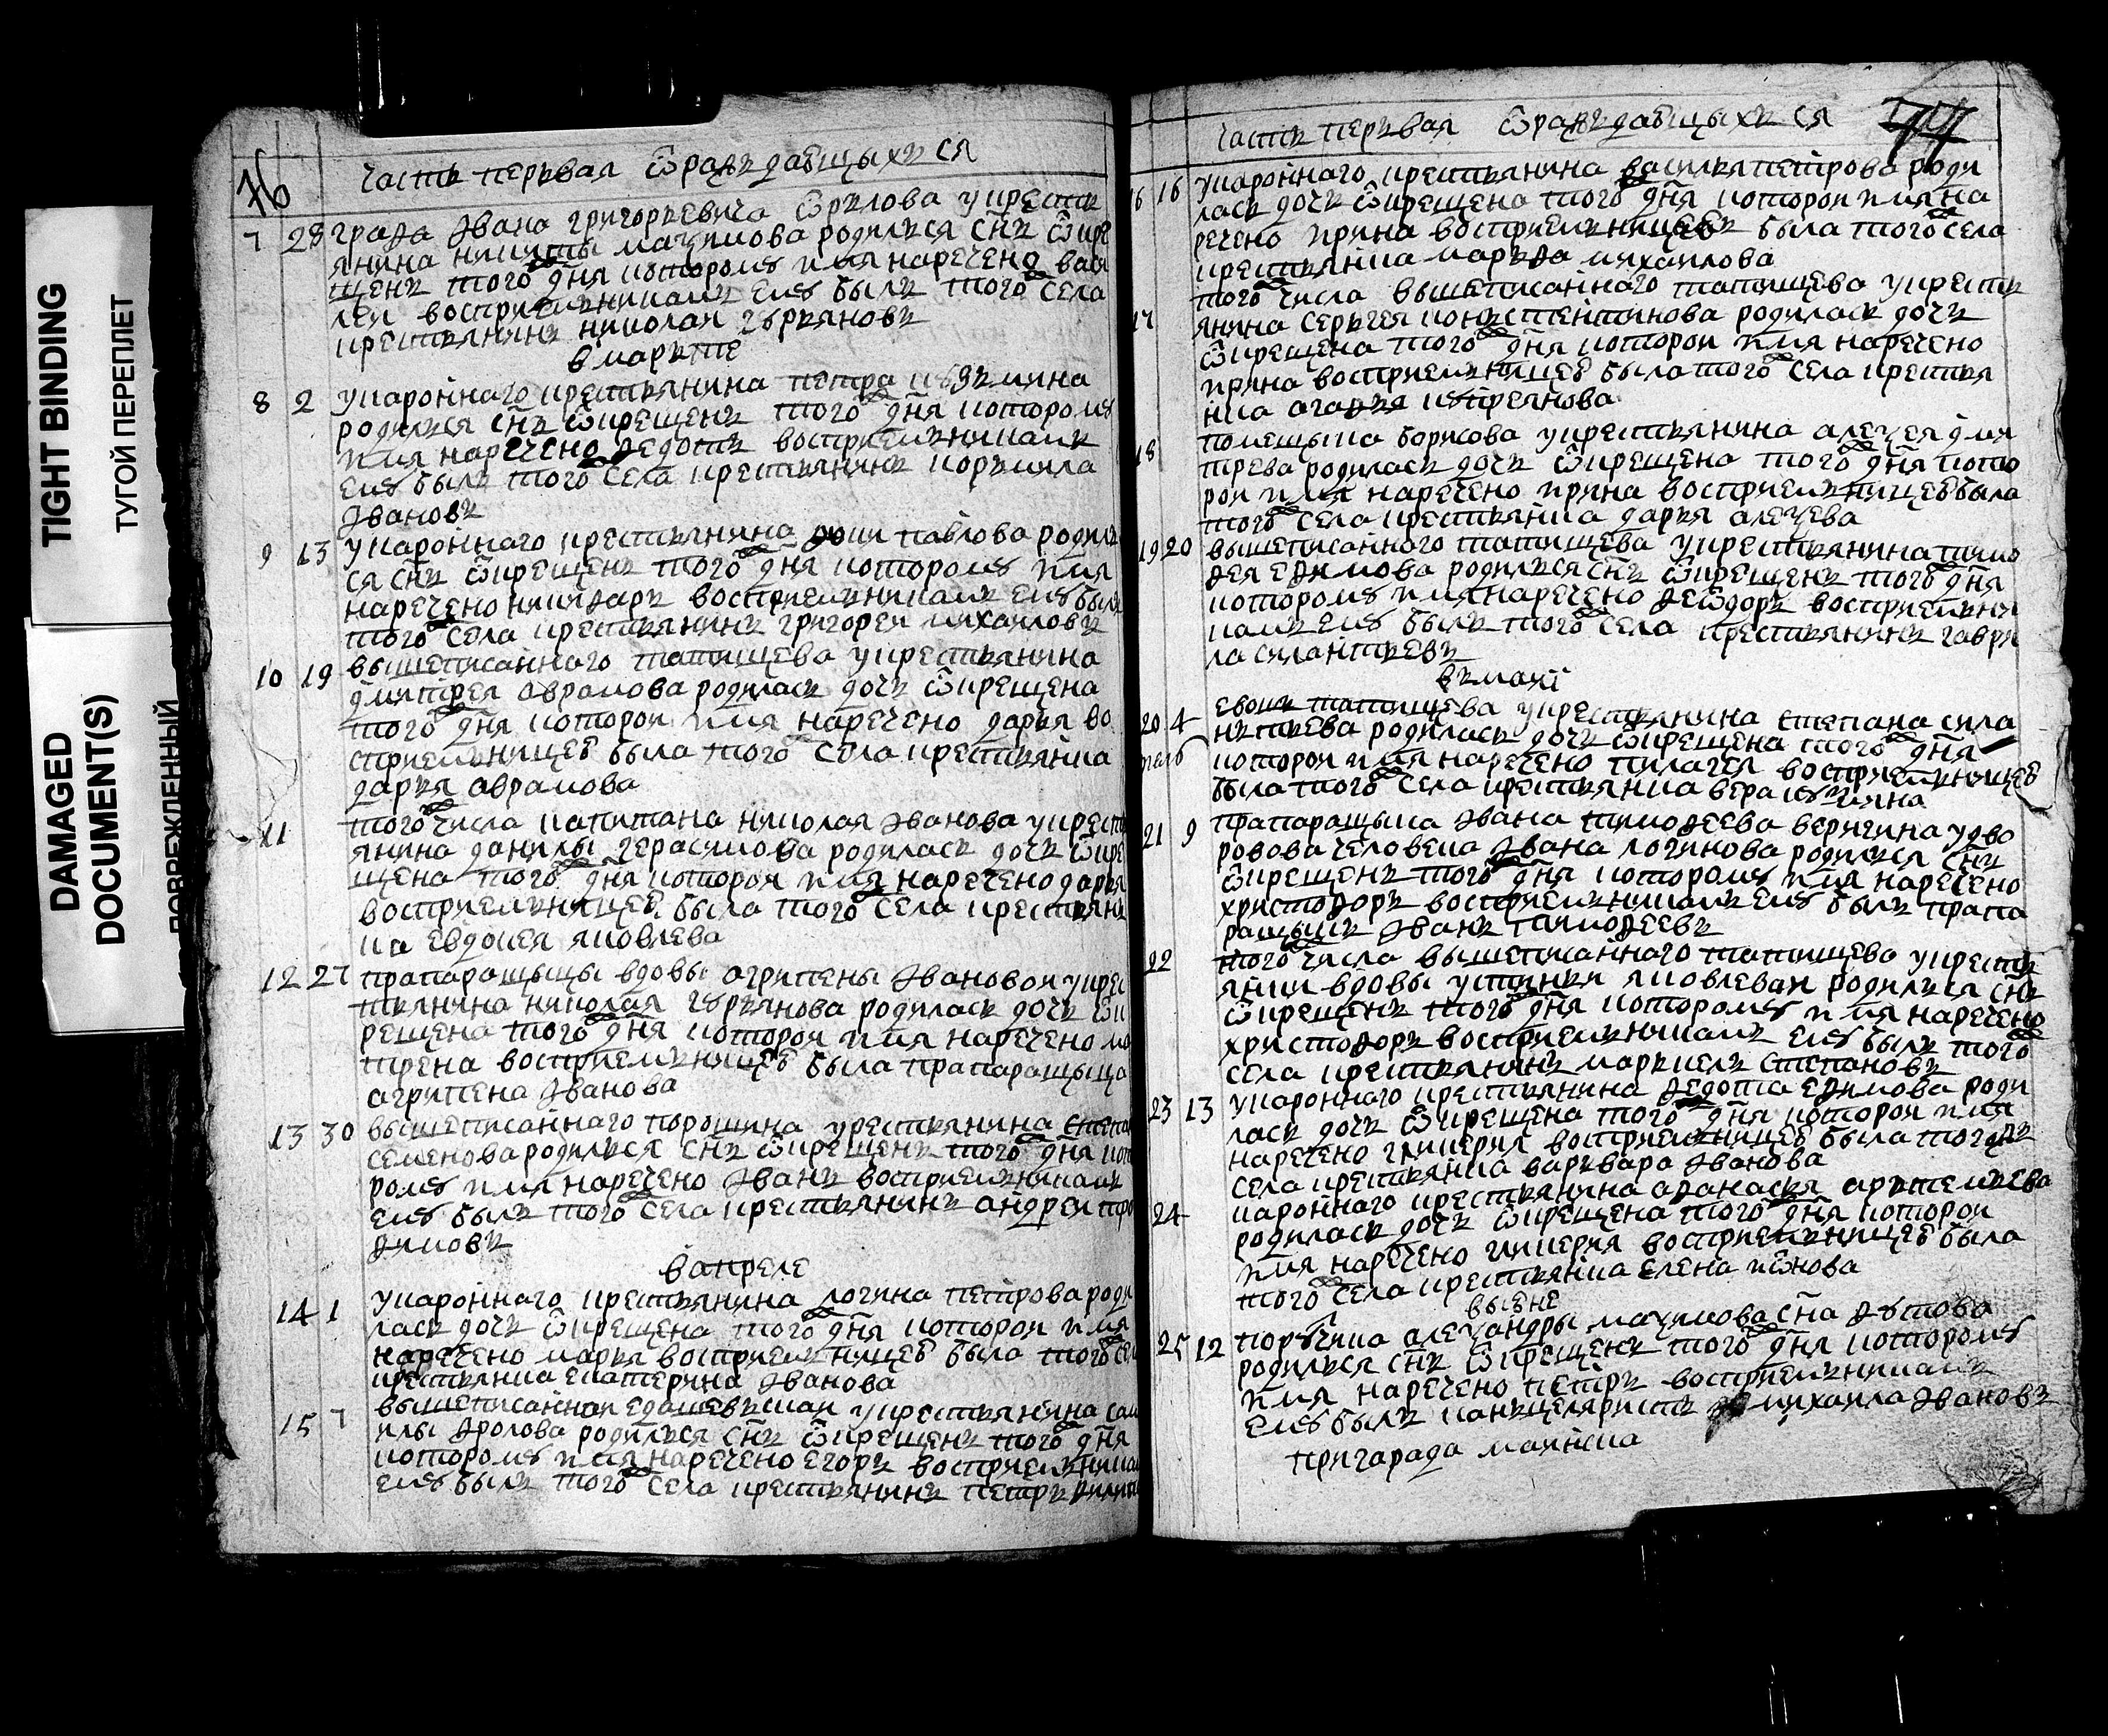 TIGHT BINDING
ТУГОЙ ПЕРЕПЛЕТ
DAMAGED
DOCUMENT(S)
ПОВРЕЖДЕННЫЙ
76
часть перьвая ѿраждаѣщыхъ ся
графа ѳвана григорьевича ѿрлова у крестк
7 28 янина никиты мазимова родился сн҃ъ ѿкре
щенъ того дн҃я котороmꙋ имя наречено васи
леи восприемьникамъ емꙋ былъ того села
крестьянинъ николаи гꙋрьяновъ
вмарьте
8 2 у кароннаго крестьянина петра кꙋзьмина
родился сн҃ъ ѿкрещенъ того дн҃я которомꙋ
имя наречено ѳедотъ восприемьникамъ
емꙋ былъ того села крестьянинъ корьнила
ѳвановъ
9 13 у кароннаго крестьянина фоки павлова родил
ся сн҃ъ ѿкрещенъ того дн҃я которомꙋ имя
наречено никифаръ восприемьникамъ емꙋ был
того села крестьянинъ григореи михаиловъ
10 19 вышеписаннаго татищева у крестьянина
дмитрея аврамова родилась дочь ѿкрещена
того дн҃я которои имя наречено дарья во
сприемьницеѣ была того села крестьянка
дарья аврамова
11 того числа капитана николая ѳванова у крест
янина данилы герасимова родилась дочь ѿкре
щена того дн҃я которои имя наречено дарья
восприемьницеѣ была того села крестьян
ка евдокея яковлева
12 27 прапаращыцы вдовы агрипены ѳвановои у крес
тьянина николая гꙋрьянова родилась дочь ѿк
рещена того дн҃я которои имя наречено ма
трена восприемьницеѣ была прапаращыца
агрипена ѳванова
13 30 вышеписаннаго порошина у рестьянина степа
семенова родился сн҃ъ ѿкрещенъ того дн҃я кот
ромꙋ имя наречено ѳванъ восприемьникамъ
емꙋ былъ того села крестьянинъ андреи тро
ѳимовъ
вапреле
14 1 у кароннаго крестьянина логина петрова роди
лась дочь ѿкрещена того дн҃я которои имя
наречено марья восприемьницеѣ была того сел
крестьянка екатерина ѳванова
15 7 вышеписаннои едашевьскаи у крестьянина сам
илы ѳролова родился сн҃ъ ѿкрещенъ того дн҃я
которомꙋ имя наречено егоръ восприемьника
емꙋ былъ того села крестьянинъ петръ ѳилип
часть перьвая ѿраждаѣщыхъ ся
16 16 у кароннаго крестьянина василья петрова роди
лась дочь ѿкрещена того дн҃я которои имя на
речено ирина восприемьницеѣ была того села
крестьянка марьѳа михаилова
17 того числа вышеписаннаго татищева у крестк
янина серьгея коньстентинова родилась дочь
ѿкрещена того дн҃я которои имя наречено
ирина восприемьницеѣ была того села крестья
нка агафья кꙋпреянова
18 помещыка борисова у крестьянина алеѯея дми
трева родилась дочь ѿкрещена того дн҃я кото
рои имя наречено ирина восприемьницеѣ была
того села крестьянка дарья алеѯева
19 20 вышеписаннаго татищева у крестьянина тимо
ѳея еѳимова родился сн҃ъ ѿкрещенъ того дн҃я
которомꙋ имя наречено ѳеѡдоръ восприемьни
камъ емꙋ былъ того села крестьянинъ гаври
ла силантьевъ
вьмаиі
20 4 евокъ татищева у крестьянина степана сила
нтьева родилась дочь ѿкрещена того дн҃я
которои имя наречено пилагея восприемьницеѣ
была того села крестьянка вера
21 9 прапаращыка ѳвана тимоѳеева веригина у дво
ровова человека ѳвана логинова родился сн҃ъ
ѿкрещенъ того дн҃я которомꙋ имя наречено
христоѳоръ восприемьникамъ емꙋ былъ прапа
ращыкъ ѳванъ тимоѳеевъ
22 того числа вышеписаннаго татищева у крестк
янки вдовы устинки яковлеваи родился сн҃ъ
ѿкрещенъ того дн҃я которомꙋ имя наречено
христоѳоръ восприемьникамъ емꙋ былъ того
села крестьянинъ маркелъ степановъ
23 13 у кароннаго крестьянина ѳедота еѳимова роди
лась дочь ѿкрещена того дн҃я которои имя
наречено гликерия восприемьницеѣ была тогожъ
села крестьянка варьвара ѳванова
24 кароннаго крестьянина аѳанасья арьтемьева
родилась дочь ѿкрещена того дн҃я которои
имя наречено гликерия восприемьницеѣ была
того села крестьянка елена иѡнова
выѣне
25 12 порꙋчика алеѯандры маѯимова сн҃а
родился сн҃ъ ѿкрещенъ того дн҃я которомꙋ
имя наречено петръ восприемьникамъ
емꙋ былъ канцеляристъ михаила ѳвановъ
пригарада маинска